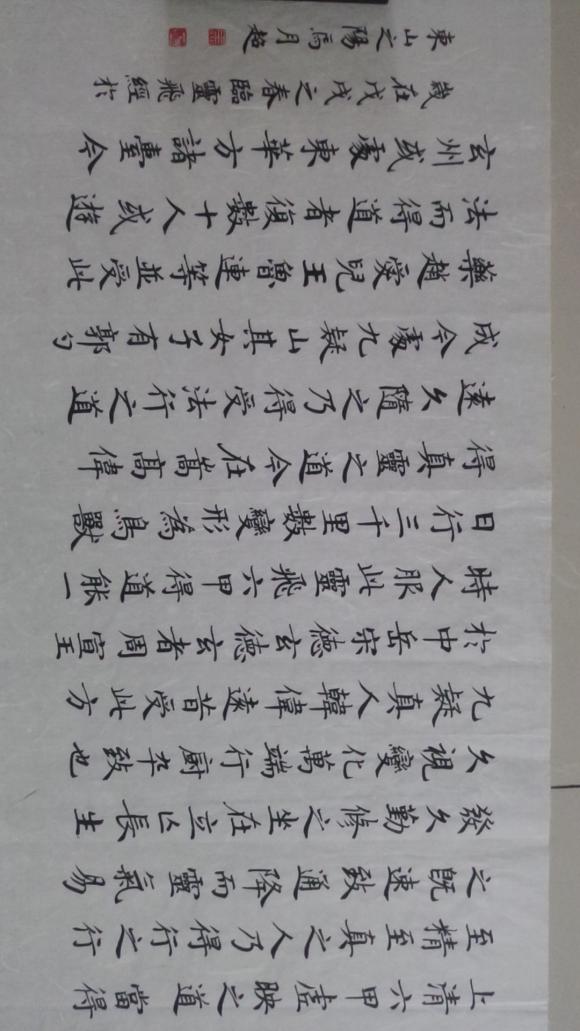 上清六甲虛映之道當得
至精至真之人乃得行之行
之既速致通降而靈氣易
發久勤修之坐在立亡長生
久視變化萬端行厨卒致也
九疑真人韓偉遠昔受此方
於中岳宋德玄德玄者周宣王
時人服此靈飛六甲得道能一
日行三千里數變形為鳥獸
得真靈之道今在嵩高偉
遠久隨之乃得受法行之道
成今處九疑山其女子有郭勺
藥趙愛兒王魯連等並受此
法而得道者復數十人或遊
玄州或處東華方諸臺今
歲在戊戌之春臨靈飛經於
東山之陽馬月超